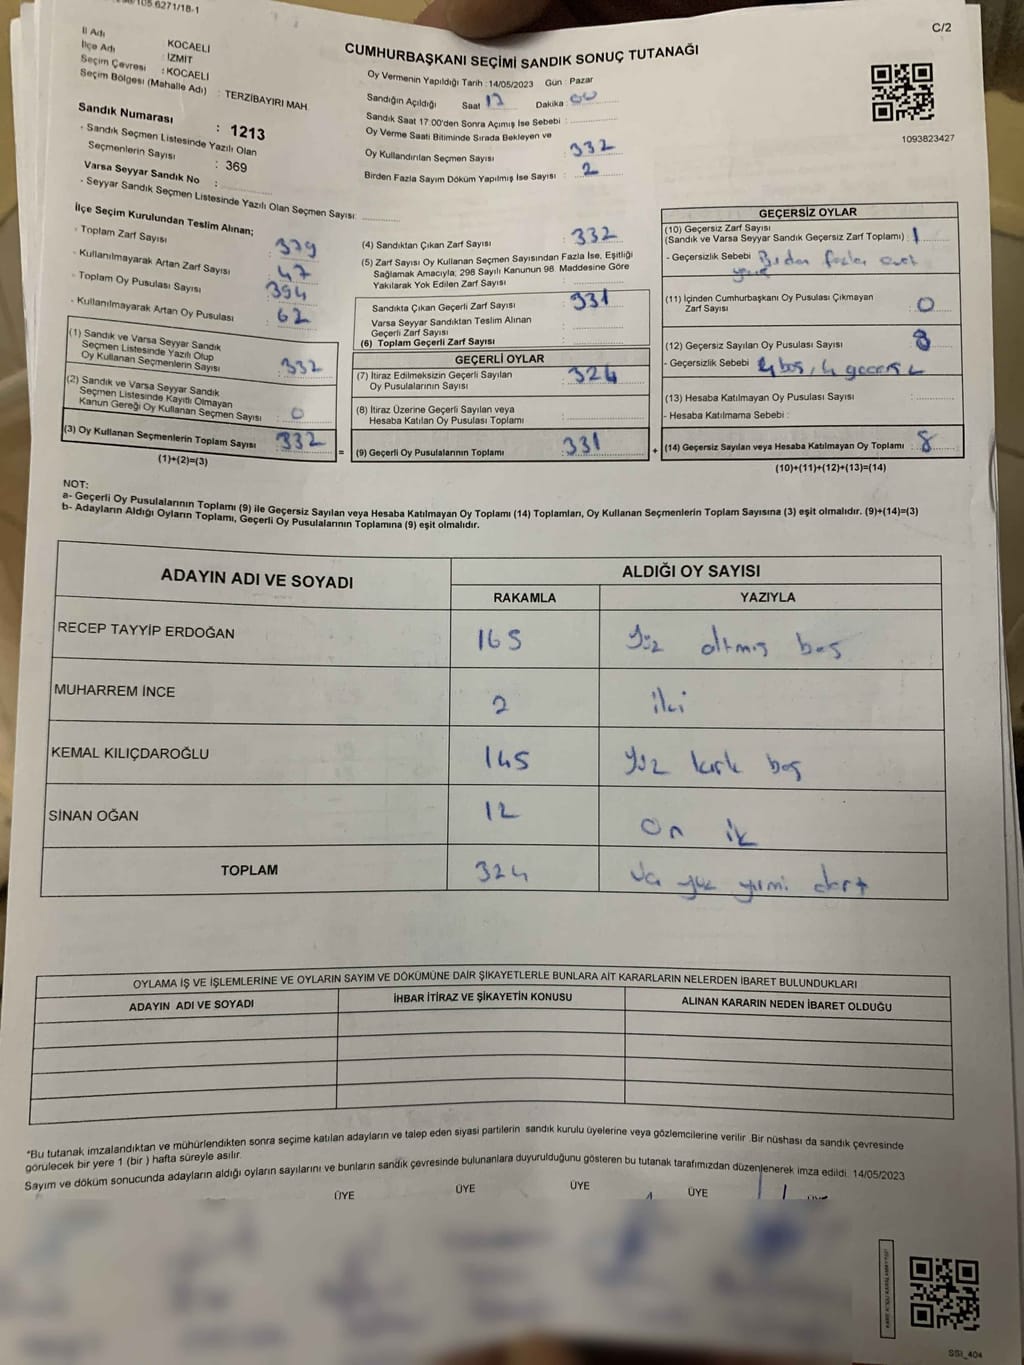 105.6271/18-1
C/2
İl Adı KOCAELİ
İlçe Adı : İZMİT
Seçim Çevresi : KOCAELİ
Seçim Bölgesi (Mahalle Adı) : TERZİBAYIRI MAH.
CUMHURBAŞKANI SEÇİMİ SANDIK SONUÇ TUTANAĞI
Oy Vermenin Yapıldığı Tarih : 14/05/2023 Gün : Pazar
Sandığın Açıldığı Saat 17 Dakika 00
Sandık Saat 17:00'den Sonra Açımış İse Sebebi :
Oy Verme Saati Bitiminde Sırada Bekleyen ve
Oy Kullandırılan Seçmen Sayısı : 332
Birden Fazla Sayım Döküm Yapılmış İse Sayısı : 2
1093823427
Sandık Numarası : 1213
- Sandık Seçmen Listesinde Yazılı Olan
Seçmenlerin Sayısı : 369
Varsa Seyyar Sandık No :
- Seyyar Sandık Seçmen Listesinde Yazılı Olan Seçmen Sayısı :
İlçe Seçim Kurulundan Teslim Alınan;
- Toplam Zarf Sayısı : 379
- Kullanılmayarak Artan Zarf Sayısı : 47
- Toplam Oy Pusulası Sayısı : 394
- Kullanılmayarak Artan Oy Pusulası : 62
(1) Sandık ve Varsa Seyyar Sandık
Seçmen Listesinde Yazılı Olup
Oy Kullanan Seçmenlerin Sayısı : 332
(2) Sandık ve Varsa Seyyar Sandık
Seçmen Listesinde Kayıtlı Olmayan
Kanun Gereği Oy Kullanan Seçmen Sayısı : 0
(3) Oy Kullanan Seçmenlerin Toplam Sayısı : 332
(1)+(2)=(3)
(4) Sandıktan Çıkan Zarf Sayısı : 332
(5) Zarf Sayısı Oy Kullanan Seçmen Sayısından Fazla İse, Eşitliği
Sağlamak Amacıyla; 298 Sayılı Kanunun 98. Maddesine Göre
Yakılarak Yok Edilen Zarf Sayısı :
Sandıkta Çıkan Geçerli Zarf Sayısı : 331
Varsa Seyyar Sandıktan Teslim Alınan
Geçerli Zarf Sayısı :
(6) Toplam Geçerli Zarf Sayısı :
GEÇERLİ OYLAR
(7) İtiraz Edilmeksizin Geçerli Sayılan
Oy Pusulalarının Sayısı : 324
(8) İtiraz Üzerine Geçerli Sayılan veya
Hesaba Katılan Oy Pusulası Toplamı :
= (9) Geçerli Oy Pusulalarının Toplamı : 331
GEÇERSİZ OYLAR
(10) Geçersiz Zarf Sayısı
(Sandık ve Varsa Seyyar Sandık Geçersiz Zarf Toplamı) : 1
- Geçersizlik Sebebi : Birden fazla evet
(11) İçinden Cumhurbaşkanı Oy Pusulası Çıkmayan
Zarf Sayısı : 0
(12) Geçersiz Sayılan Oy Pusulası Sayısı : 8
- Geçersizlik Sebebi : 4 boş, 4 geçersiz
(13) Hesaba Katılmayan Oy Pusulası Sayısı :
- Hesaba Katılmama Sebebi :
+ (14) Geçersiz Sayılan veya Hesaba Katılmayan Oy Toplamı : 8
(10)+(11)+(12)+(13)=(14)
NOT:
a- Geçerli Oy Pusulalarının Toplamı (9) ile Geçersiz Sayılan veya Hesaba Katılmayan Oy Toplamı (14) Toplamları, Oy Kullanan Seçmenlerin Toplam Sayısına (3) eşit olmalıdır. (9)+(14)=(3)
b- Adayların Aldığı Oyların Toplamı, Geçerli Oy Pusulalarının Toplamına (9) eşit olmalıdır.
ADAYIN ADI VE SOYADI ALDIĞI OY SAYISI
RAKAMLA YAZIYLA
RECEP TAYYİP ERDOĞAN 165 Yüz altmış beş
MUHARREM İNCE 2 iki
KEMAL KILIÇDAROĞLU 145 Yüz kırk beş
SİNAN OĞAN 12 On ik
TOPLAM 324 yüz yirmi dört
OYLAMA İŞ VE İŞLEMLERİNE VE OYLARIN SAYIM VE DÖKÜMÜNE DAİR ŞİKAYETLERLE BUNLARA AİT KARARLARIN NELERDEN İBARET BULUNDUKLARI
ADAYIN ADI VE SOYADI İHBAR İTİRAZ VE ŞİKAYETİN KONUSU ALINAN KARARIN NEDEN İBARET OLDUĞU
*Bu tutanak imzalandıktan ve mühürlendikten sonra seçime katılan adayların ve talep eden siyasi partilerin sandık kurulu üyelerine veya gözlemcilerine verilir. Bir nüshası da sandık çevresinde
görülecek bir yere 1 (bir) hafta süreyle asılır.
Sayım ve döküm sonucunda adayların aldığı oyların sayılarını ve bunların sandık çevresinde bulunanlara duyurulduğunu gösteren bu tutanak tarafımızdan düzenlenerek imza edildi. 14/05/2023
ÜYE ÜYE ÜYE ÜYE
SSI_404